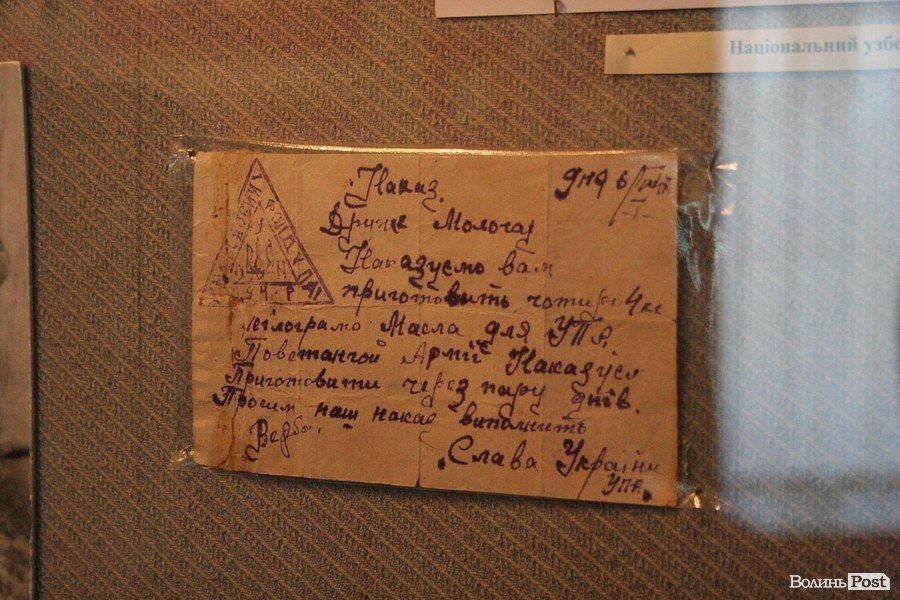 Національний узбе
Наказ.
дня 6
Друже Молочар
Наказуємо вам
приготовить чотири 4 кг
кілограмо Масла для УПА,
Повстанчой Армії Наказуєм
Приготовити через пару днів.
Просим наш наказ виполнить
Верба.
Слава Україні
УПА.
ВолиньPost